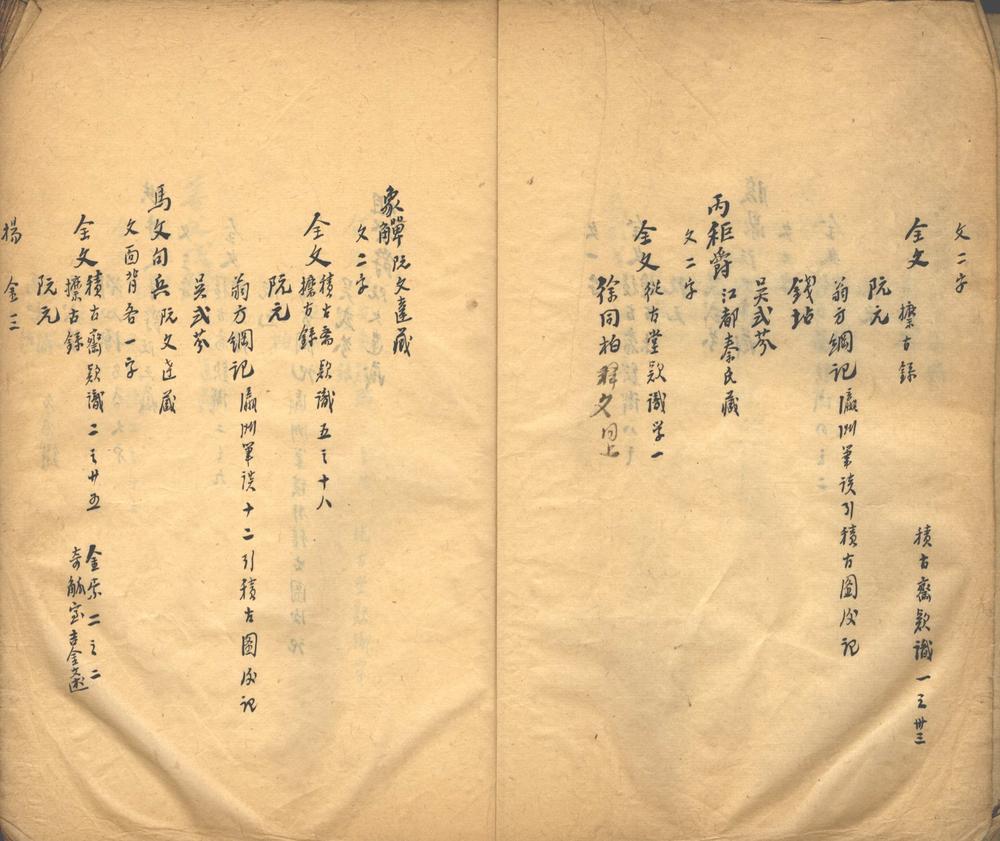 文二字
全文 攈古錄 積古齋款識一之卅三
阮元
翁方綱記瀛洲筆談引積古圖後記
錢坫
吳式芬
丙秬爵 江都秦氏藏
文二字
全文 從古堂款識學一
徐同柏釋文同上
象觶 阮文達藏
文二字
全文 積古齋款識五之十八
攈古錄
阮元
翁方綱記瀛洲筆談十二引積古圖後記
吳式芬
馬文句兵 阮文達藏
文面背各一字
全文 積古齋款識二之廿五 金索二之二
攈古錄 奇觚室吉金文述
阮元
楊 金三